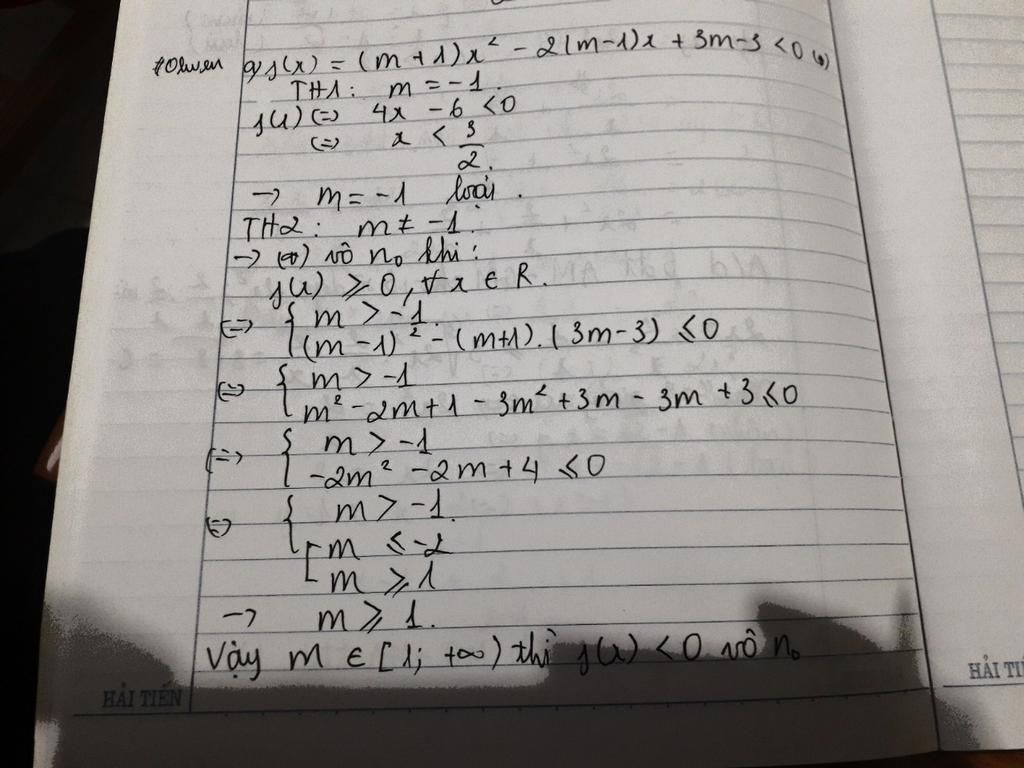 a, f(x) = (m+1)x² - 2(m-1)x + 3m-3 <0 (*)
TH1: m = -1.
f(x) ⇔ 4x - 6 <0
⇔ x < 3/2.
→ m = -1 loại.
TH2: m ≠ -1.
→ (*) vô n₀ khi:
f(x) ≥ 0, ∀ x ∈ R.
⇔ { m > -1.
(m-1)² - (m+1).(3m-3) ≤ 0
⇔ { m > -1
m² - 2m + 1 - 3m² + 3m - 3m + 3 ≤ 0
⇔ { m > -1
-2m² - 2m + 4 ≤ 0
⇔ { m > -1.
[ m ≤ -2
m ≥ 1
→ m ≥ 1.
Vậy m ∈ [1; +∞) thì f(x) < 0 vô n₀
HẢI TIẾN
HẢI TI